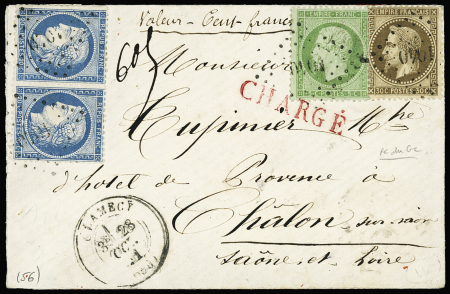 Valeur = Cent francs
EMPIRE FRANC
EMPIRE FRANC
30C POSTES 30C
605
Monsieur
CHARGÉ
Cupinier Mhe
d'hotel de Provence à
Châlon sur saone
saône et Loire
CLAMECY
28
OCT.
(56)